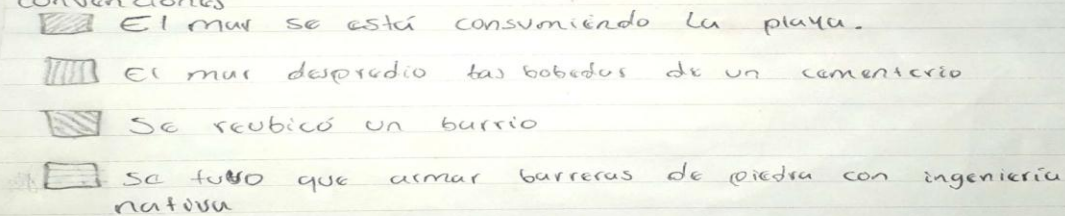 convenciones
El mar se está consumiendo la playa.
El mar despredio las bobedas de un cementerio
Se reubicó un barrio
Se tuvo que armar barreras de piedra con ingenieria
nativa